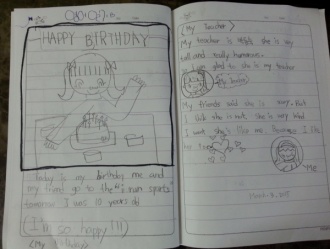 HAPPY BIRTHDAY
Today is my birthday me and
my friend go to the "i run sports"
tomorrow I was 10 years old
(I'm so happy!!!)
<My birthday>
<My teacher>
My teacher is she is very
tall and really humorous.
I am glad to she is my teacher
My friends said she is very. But
I she is not. she is very kind
I want she's like me. Because I like
her
Me